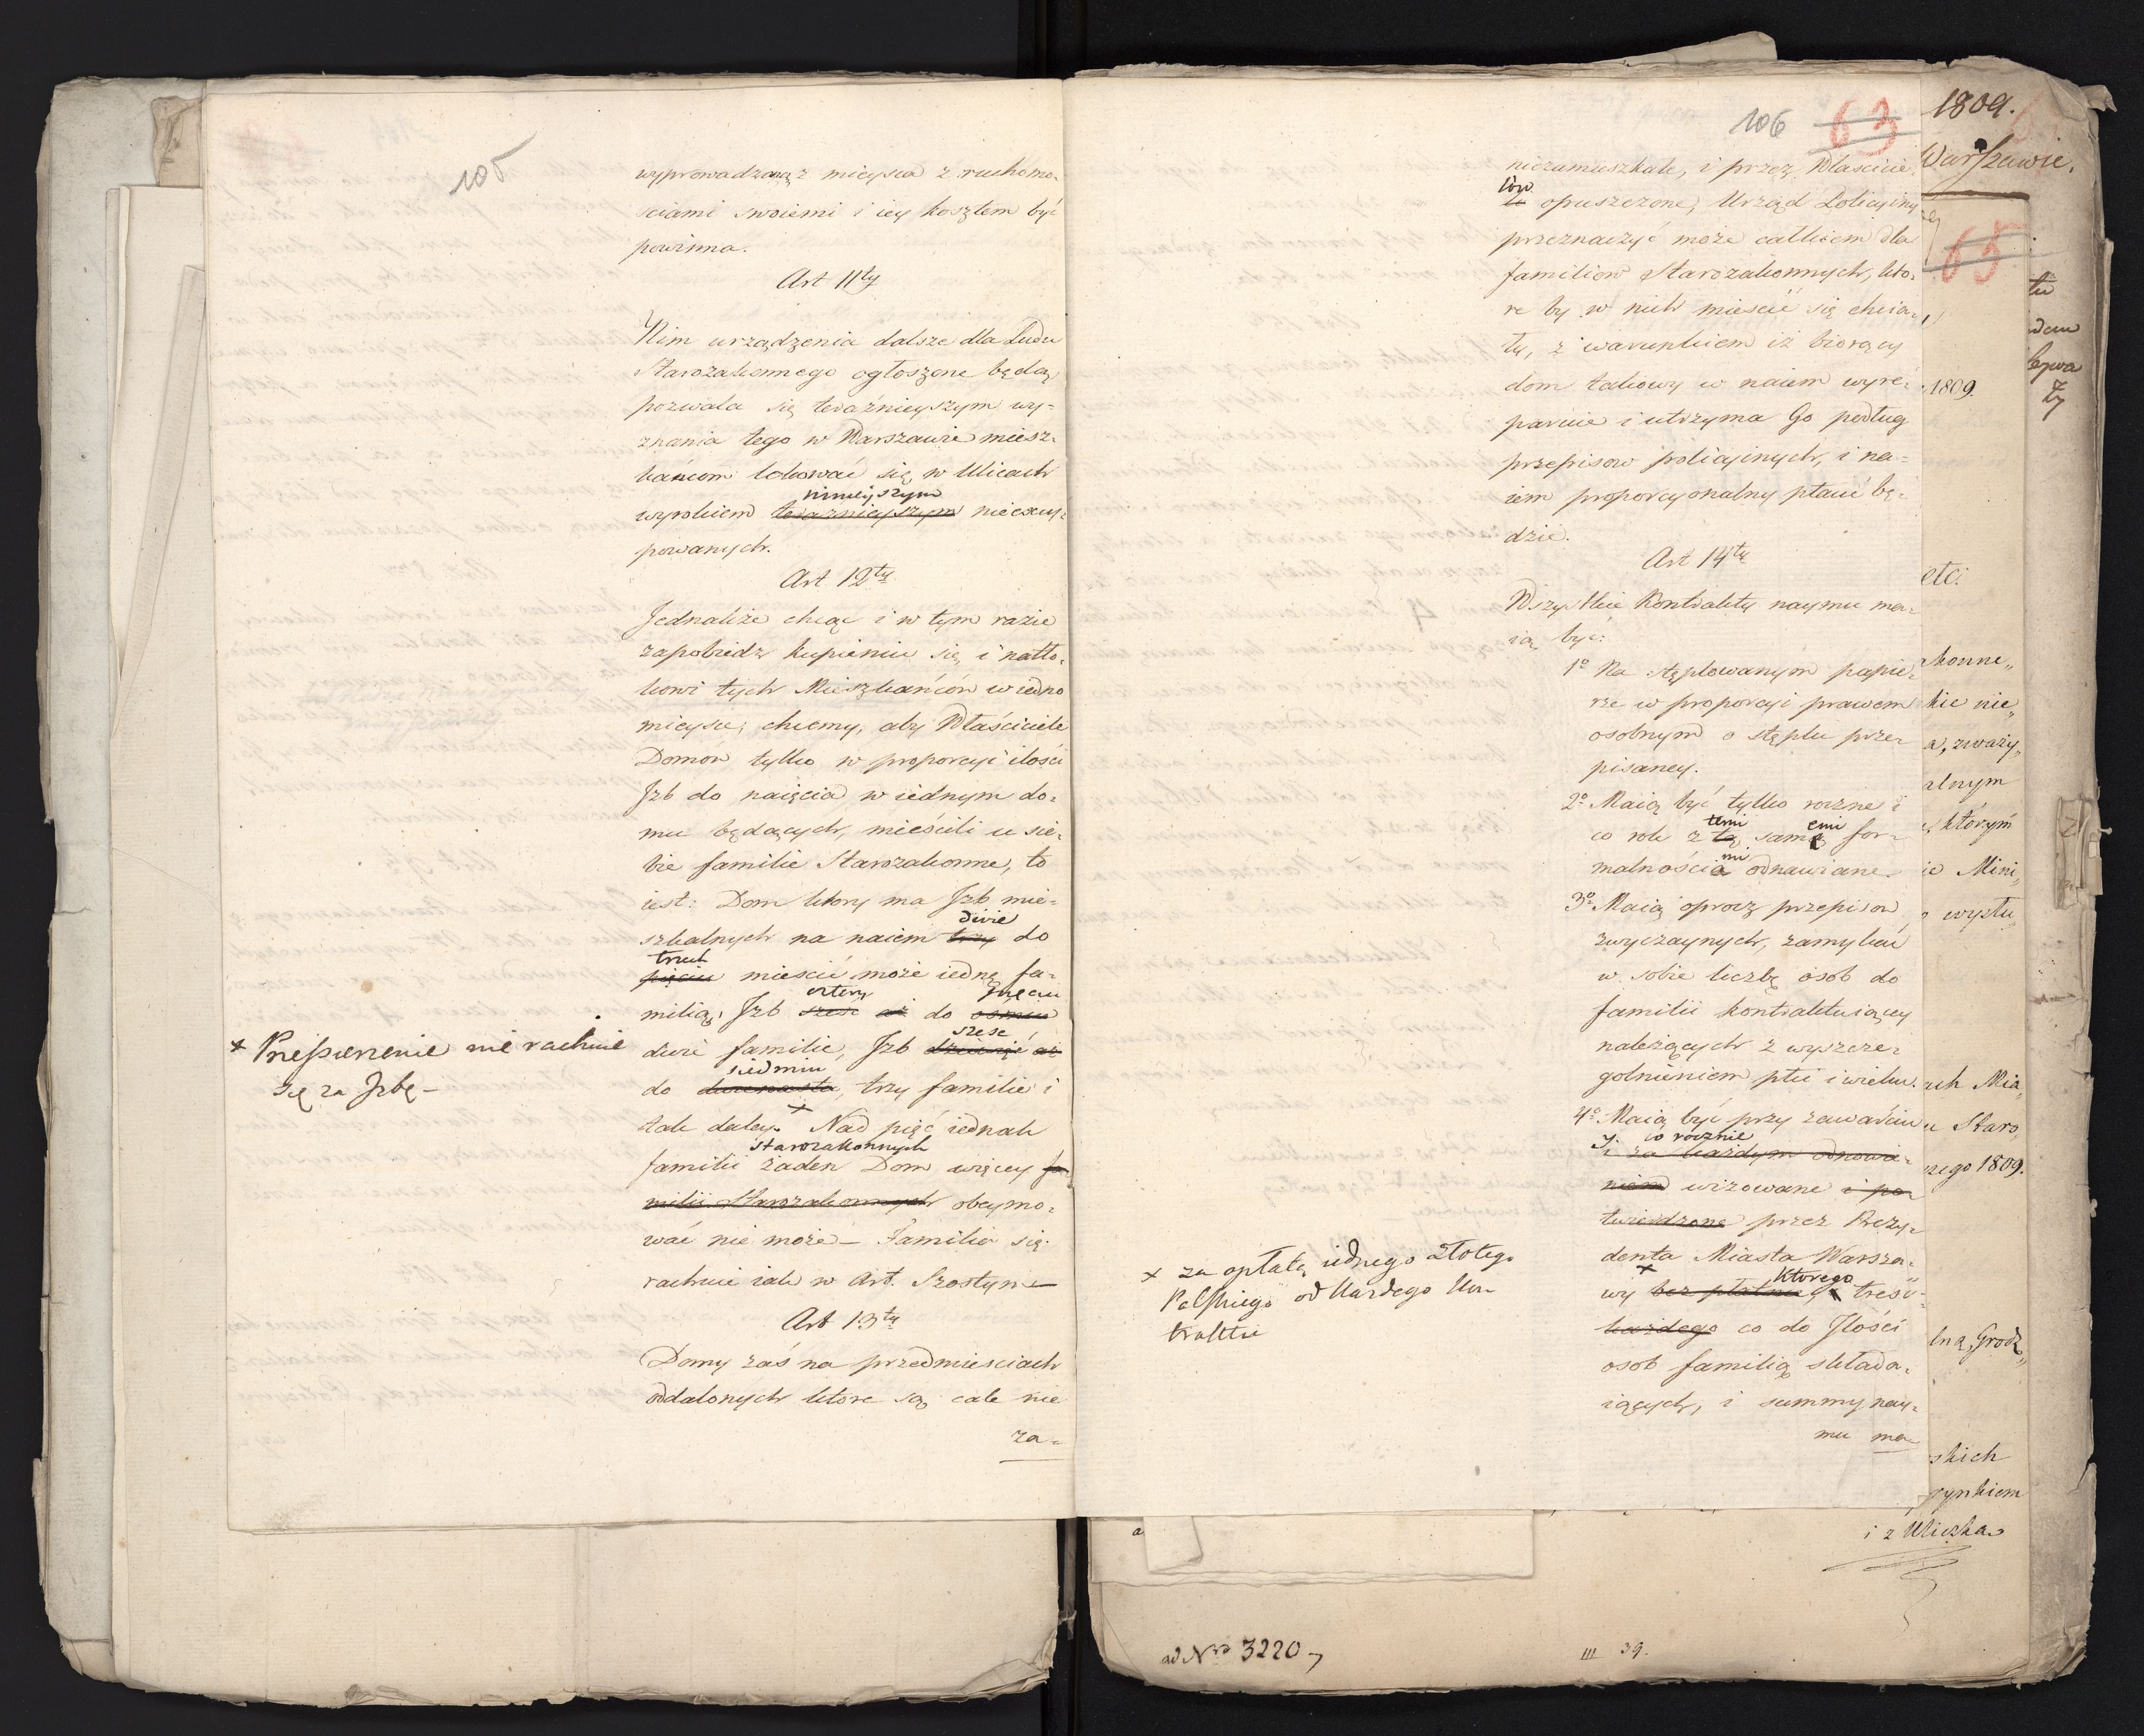 105
wyprowadzoną z mieysca z ruchomo=
sciami swoiemi i iey kosztem być
powinna.
Art 11ty
Nim urządzenia dalsze dla Ludu
Starozakonnego ogłoszone będą,
pozwala się teraźnieyszym wy=
znania tego w Warszawie miesz=
kańcom lokować się w Ulicach
ninieyszym
wyrokiem teraznieyszym nieexcy=
powanych.
Art 12ty
Jednakże chcąc i w tym razie
zapobiedz kupieniu się i natło=
kowi tych Mieszkańców w iedno
mieysce, chcemy, aby Właściciele
Domów tylko w proporcyi ilości
Jzb do naięcia w iednym do=
mu będących, mieścili u sie=
bie familie Starozakonne, to
iest: Dom ktory ma Jzb mie=
dwie
szkalnych na naiem trzy do
trzech
pięciu mieścić może iedną fa=
cztery pięciu
milią, Jzb sześć aż do osmiu
szesc
dwie familie, Jzb dziewięć aż
siedmiu
do dwunastu, trzy familie i
x
tak daley. Nad pięć iednak
starozakonnych
familii żaden Dom więcey fa=
milii Starozakonnych obeymo=
wać nie może – Familia się
rachuie iak w Art. Szostym –
Art 13ty
Domy zaś na przedmiesciach
oddalonych ktore są cale nie
za=
x Przepierzenie nie rachuie
się za Jzbę –
106 63
niezamieszkałe, i przez Właścicie=
low
le opuszczone, Urząd Policyiny
przeznaczyć może całkiem dla
familiow Starozakonnych, kto=
re by w nich mieścić się chcia=
ły, z warunkiem iż biorący
dom takowy w naiem wyre=
paruie i utrzyma Go podług
przepisow policyinych, i na=
iem proporcyonalny płacić bę=
dzie.
Art 14ty
Wszystkie Kontrakty naymu ma=
ią być:
1o Na stęplowanym papie=
rze w proporcyi prawem
osobnym o stęplu prze=
pisaney.
2o Maią być tylko roczne i
temi emi
co rok z tą samą for=
mi
malnościa odnawiane.
3o Maią oprocz przepisow
zwyczaynych, zamykać
w sobie liczbę osób do
familii kontraktuiącey
należących z wyszcze=
golnieniem płci i wieku.
4o Maią być przy zawarciu
y co rocznie
i za każdym odnowie=
niem wizowane i po=
twierdzone przez Prezy=
denta Miasta Warsza=
x ktorego
wy bez płatnie, treść
każdego co do Jlości
osob familią składa=
iących, i summy nay=
mu ma
x za opłatą iednego złotego
Polskiego od każdego Kon
traktu
1809.
Warszawie.
65
1809.
etc.
akonne„
kie nie„
a, zważy„
alnym
, którym
ie Mini„
o wystu„
ych Mia„
u Staro„
zego 1809.
lną, Grodz„
skich
rynkiem
i z Uliczka
ad Nro 3220
III 39.